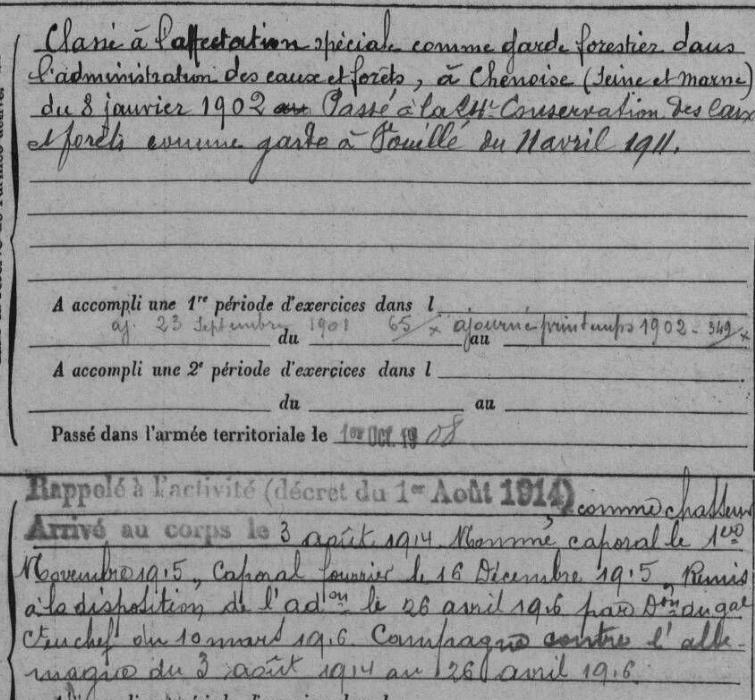 Classé à l'affectation spéciale comme garde forestier dans
l'administration des eaux et forêts, à Chenoise (Seine et Marne)
du 8 janvier 1902 Passé à la Conservation des Eaux
et forêts comme garde à Fouillé du 11 avril 1911.
A accompli une 1re période d'exercices dans l
aj. 23 Septembre 1901 65/x ajourné printemps 1902 - 349/x
du au
A accompli une 2e période d'exercices dans l
du au
Passé dans l'armée territoriale le 1er Oct. 1908
Rappelé à l'activité (décret du 1er Août 1914), comme chasseur
Arrivé au corps le 3 août 1914. Nommé caporal le 1er
Novembre 1915, Caporal fourrier le 16 Décembre 1915, Remis
à la disposition de l'adon le 26 avril 1916 par Don du gal
Ct en chef du 10 mars 1916 Campagne contre l'alle-
magne du 3 août 1914 au 26 avril 1916